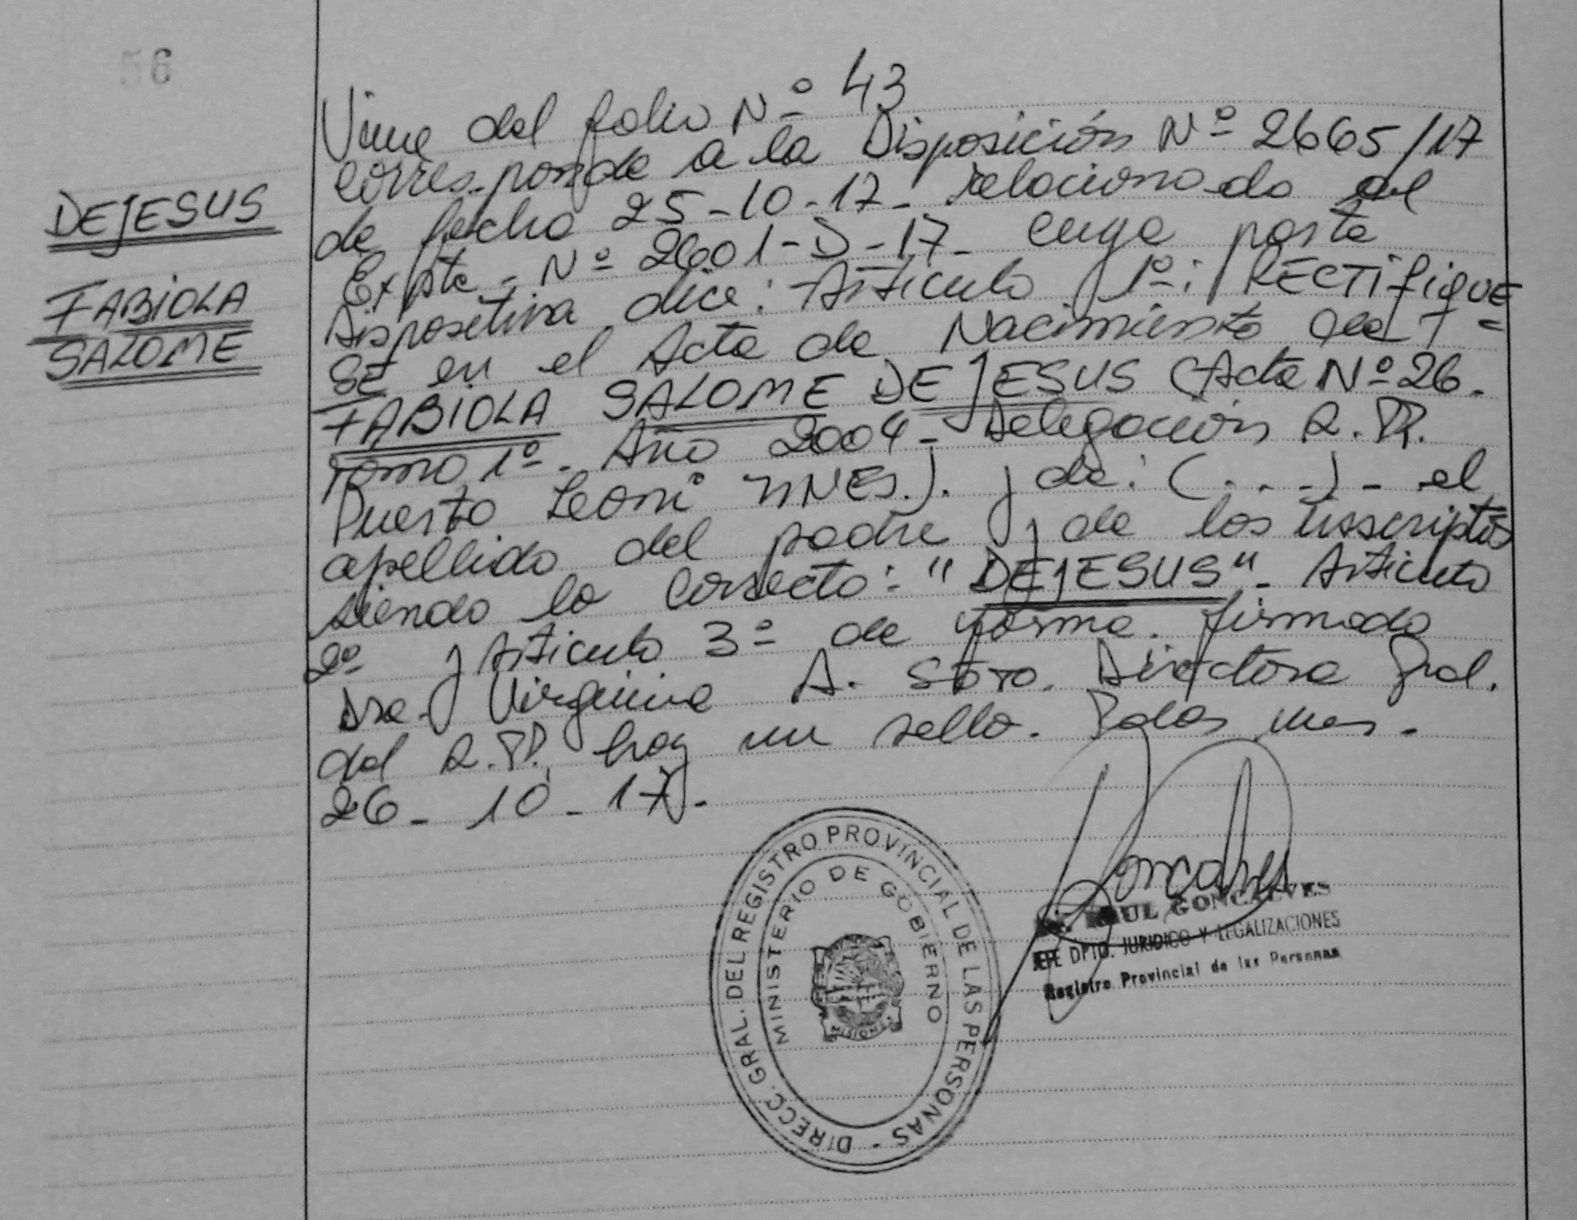 56
Viene del folio Nº 43
corresponde a la Disposición Nº 2665/17
de fecha 25-10-17- relacionado al
Expte- Nº 2601-D-17- cuya parte
Dispositiva dice: Artículo 1º: RECTIFIQUE
SE en el Acta de Nacimiento de
FABIOLA SALOME DE JESUS (Acta Nº 26.
Tomo 1º- Año 2004- Delegación R.PP.
Puerto Leoni MNES.). y de: (...)- el
apellido del padre y de los inscriptos
siendo lo correcto: "DEJESUS"- Artículo
2º y Artículo 3º de forma. firmado
Dra. Virginia A. Soto. Directora Gral.
del R.PP. hay un sello. Pdas, Mnes.
26-10-17.
DEJESUS
FABIOLA
SALOME
DIRECC. GRAL. DEL REGISTRO PROVINCIAL DE LAS PERSONAS -
MINISTERIO DE GOBIERNO
MISIONES
Goncalves
RAUL GONCALVES
JEFE DPTO. JURIDICO Y LEGALIZACIONES
Registro Provincial de las Personas